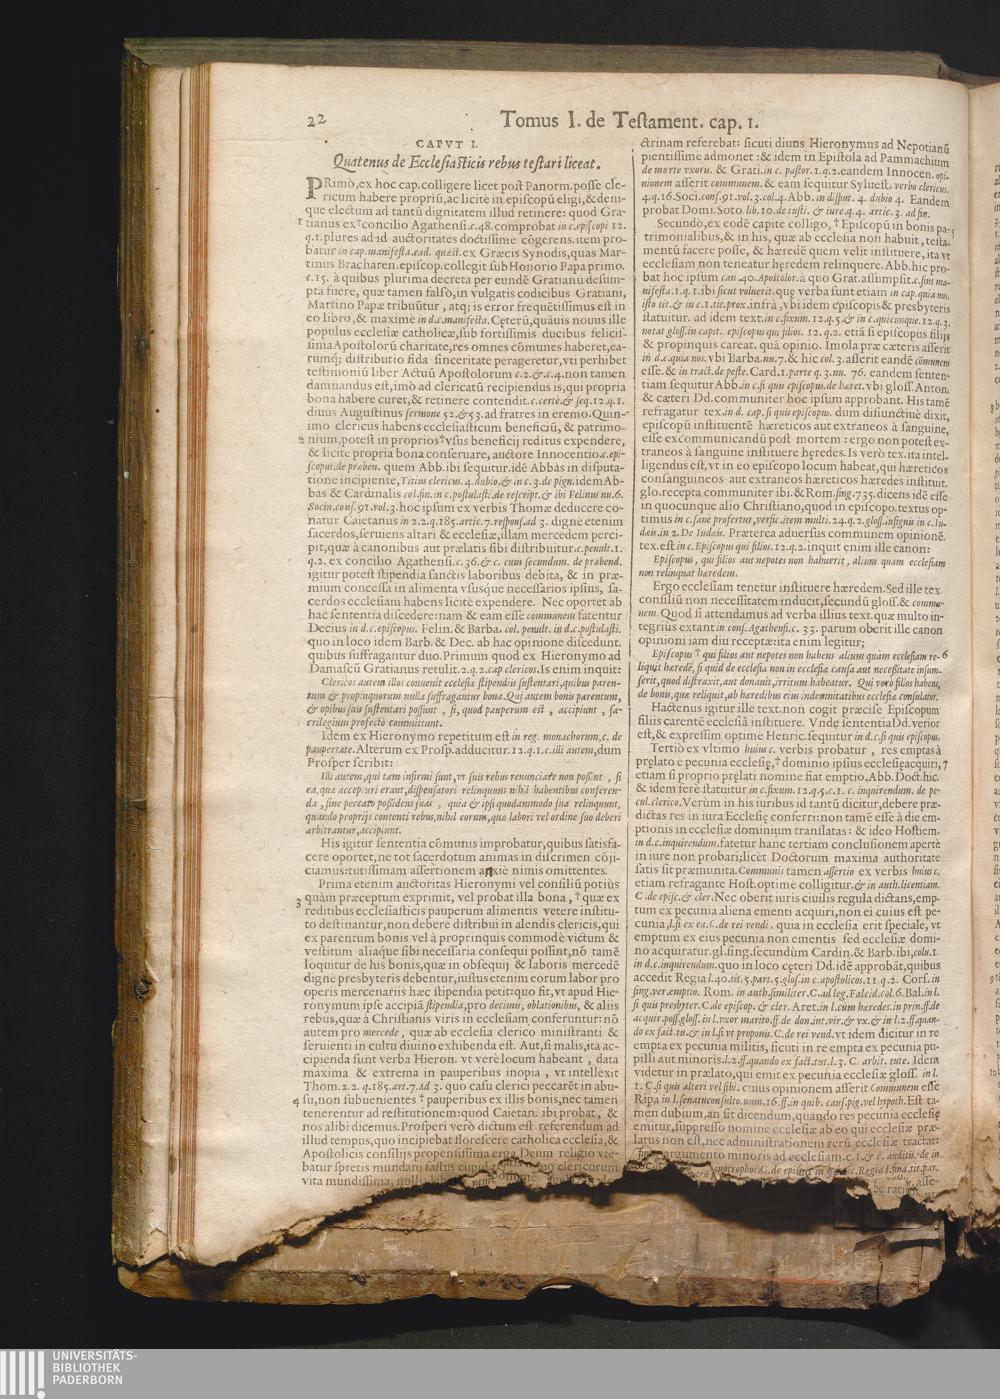 22
Tomus I. de Testament. cap. 1.
CAPVT I.
Quatenus de Ecclesiasticis rebus testari liceat.
PRimò, ex hoc cap. colligere licet post Panorm. posse cle-
ricum habere propriũ, ac licitè in episcopũ eligi, & deni-
que electum ad tantũ dignitatem illud retinere: quod Gra-
1 tianus ex † concilio Agathensi. c. 48. comprobat in c. episcopi 12.
q. 1. plures ad id auctoritates doctissime cõgerens. item pro-
batur in cap. manifesta. ead. quæst. ex Græcis Synodis, quas Mar-
tinus Bracharen. episcop. collegit sub Honorio Papa primo.
c. 15. à quibus plurima decreta per eundẽ Gratianũ desum-
pta fuere, quæ tamen falsò, in vulgatis codicibus Gratiani,
Martino Papæ tribuũtur, atq; is error frequẽtissimus est in
eo libro, & maximè in d. c. manifesta. Cęterũ, quãuis nouus ille
populus ecclesiæ catholicæ, sub fortissimis ducibus felicis-
sima Apostolorũ charitate, res omnes cõmunes haberet, ea-
rumq; distributio fida sinceritate perageretur, vti perhibet
testimoniũ liber Actuũ Apostolorum c. 2. & c. 4. non tamen
damnandus est, imò ad clericatũ recipiendus is, qui propria
bona habere curet, & retinere contendit. c. certè. & seq. 12. q. 1.
diuus Augustinus sermone 52. & 53. ad fratres in eremo. Quin-
imo clericus habens ecclesiasticum beneficiũ, & patrimo-
2 nium, potest in proprios † vsus beneficij reditus expendere,
& licitè propria bona conseruare, auctore Innocentio. c. epi-
scopus. de præben. quem Abb. ibi sequitur. idẽ Abbas in disputa-
tione incipiente, Titius clericus. 4. dubio. & in c. 3. de pign. idem Ab-
bas & Cardinalis col. fin. in c. postulasti. de rescript. & ibi Felinus nu. 6.
Socin. cons. 91. vol. 3. hoc ipsum ex verbis Thomæ deducere co-
natur Caietanus in 2. 2. q. 185. artic. 7. respons. ad 3. digne etenim
sacerdos, seruiens altari & ecclesiæ, illam mercedem perci-
pit, quæ à canonibus aut prælatis sibi distribuitur. c. penult. 1.
q. 2. ex concilio Agathensi. c. 36. & c. cum secundum. de præbend.
igitur potest stipendia sanctis laboribus debita, & in præ-
mium concessa in alimenta vsusque necessarios ipsius, sa-
cerdos ecclesiam habens licitè expendere. Nec oportet ab
hac sententia discedere: nam & eam esse communem fatentur
Decius in d. c. episcopus. Felin. & Barba. col. penult. in d. c. postulasti.
quo in loco idem Barb. & Dec. ab hac opinione discedunt.
quibus suffragantur duo. Primum quod ex Hieronymo ad
Damascũ Gratianus retulit. 2. q. 2. cap clericos. Is enim inquit:
Clericos autem illos conuenit ecclesiæ stipendiis sustentari, quibus paren-
tum & propinquorum nulla suffragantur bona. Qui autem bonis parentum,
& opibus suis sustentari possunt, si, quod pauperum est, accipiunt, sa-
crilegium profectò committunt.
Idem ex Hieronymo repetitum est in reg. monachorum, c. de
paupertate. Alterum ex Prosp. adducitur. 12. q. 1. c. illi autem, dum
Prosper scribit:
Illi autem, qui tam infirmi sunt, vt suis rebus renunciare non possint, si
ea, quæ accepturi erant, dispensatori relinquunt nihil habentibus conferen-
da, sine peccato possident sua, quia & ipsi quodammodo sua relinquunt,
quando proprijs contenti rebus, nihil eorum, quæ labori vel ordine suo deberi
arbitrantur, accipiunt.
His igitur sententia cõmunis improbatur, quibus satisfa-
cere oportet, ne tot sacerdotum animas in discrimen cõji-
ciamus: tutissimam assertionem anxiè nimis omittentes.
Prima etenim auctoritas Hieronymi vel consiliũ potiùs
3 quàm præceptum exprimit, vel probat illa bona, † quæ ex
reditibus ecclesiasticis pauperum alimentis vetere institu-
to destinantur, non debere distribui in alendis clericis, qui
ex parentum bonis vel à proprinquis commodè victum &
vestitum aliaque sibi necessaria consequi possint, nõ tamẽ
loquitur de his bonis, quæ in obsequij & laboris mercedẽ
digne presbyteris debentur, iustus etenim eorum labor pro
operis mercenariis hæc stipendia petit: quo fit, vt apud Hie-
ronymum ipse accipiã stipendia, pro decimis, oblationibus, & aliis
rebus, quæ à Christianis viris in ecclesiam conferuntur: nõ
autem pro mercede, quæ ab ecclesia clerico ministranti &
seruienti in cultu diuino exhibenda est. Aut, si malis, ita ac-
cipienda sunt verba Hieron. vt verè locum habeant, data
maxima & extrema in pauperibus inopia, vt intellexit
Thom. 2. 2. q. 185. art. 7. ad 3. quo casu clerici peccarẽt in abu-
4 su, non subuenientes † pauperibus ex illis bonis, nec tamen
tenerentur ad restitutionem: quod Caietan. ibi probat, &
nos alibi dicemus. Prosperi verò dictum est referendum ad
illud tempus, quo incipiebat florescere catholica ecclesia, &
Apostolicis consilijs propensissima erga Deum religio vte-
batur spretis mundani fastus
vita mundissima,
ctrinam referebat: sicuti diuus Hieronymus ad Nepotianũ
pientissime admonet: & idem in Epistola ad Pammachium
de morte vxoris. & Grati. in c. pastor. 1. q. 2. eandem Innocen. opi-
nionem asserit communem. & eam sequitur Syluest. verbo clericus.
4. q. 16. Soci. cons. 91. vol. 3. col. 4. Abb. in disput. 4. dubio 4. Eandem
probat Domi. Soto. lib. 10. de iusti. & iure. q. 4. artic. 3. ad fin.
Secundò, ex eodẽ capite colligo, † Episcopũ in bonis pa- 5
trimonialibus, & in his, quæ ab ecclesia non habuit, testa-
mentũ facere posse, & hæredẽ quem velit instituere, ita vt
ecclesiam non teneatur hęredem relinquere. Abb. hic pro-
bat hoc ipsum can 40. Apostolor. à quo Grat. assumpsit. c. sint ma-
nifesta. 1. q. 1. ibi sicut voluerit. quę verba sunt etiam in cap. quia nos.
isto tit. & in c. 1. tit. prox. infrà, vbi idem episcopis & presbyteris
statuitur. ad idem text. in c. fixum. 12. q. 5. & in c. quicunque. 12. q. 3.
notat gloss. in capit. episcopus qui filios. 12. q. 2. etiã si episcopus filijs
& propinquis careat. quã opinio. Imola præ cæteris asserit
in d. c. quia nos. vbi Barba. nu. 7. & hic col. 3. asserit eandẽ cõmunem
esse. & in tract. de peste. Card. 1. parte q. 3. nu. 76. eandem senten-
tiam sequitur Abb. in c. si quis episcopus. de hæret. vbi gloss. Anton.
& cæteri Dd. communiter hoc ipsum approbant. His tamẽ
refragatur tex. in d. cap. si quis episcopus. dum disiunctiuè dixit,
episcopũ instituentẽ hæreticos aut extraneos à sanguine,
esse excommunicandũ post mortem: ergo non potest ex-
traneos à sanguine instituere hęredes. Is verò tex. ita intel-
ligendus est, vt in eo episcopo locum habeat, qui hæreticos
consanguineos aut extraneos hæreticos hæredes instituit.
glo. recepta communiter ibi. & Rom. sing. 735. dicens idẽ esse
in quocunque alio Christiano, quod in episcopo. textus op-
timus in c. sanè profertur, versic. item multi. 24. q. 2. gloss. insignis in c. Iu-
dæis. in 2. De Iudæis. Præterea aduersus communem opinionẽ.
tex. est in c. Episcopus qui filios. 12. q. 2. inquit enim ille canon:
Episcopus, qui filios aut nepotes non habuerit, alium quam ecclesiam
non relinquat hæredem.
Ergo ecclesiam tenetur instituere hæredem. Sed ille tex.
consiliũ non necessitatem inducit, secundũ gloss. & commu-
nem. Quod si attendamus ad verba illius text. quæ multo in-
tegrius extant in cons. Agathensi. c. 33. parum oberit ille canon
opinioni iam diu receptæ: ita enim legitur;
Episcopus † qui filios aut nepotes non habens alium quàm ecclesiam re- 6
liquit hæredẽ, si quid de ecclesia non in ecclesiæ causa aut necessitate insum-
serit, quod distraxit, aut donauit, irritum habeatur. Qui verò filios habent,
de bonis, quæ reliquit, ab hæredibus eius indemnitatibus ecclesiæ consulatur.
Hactenus igitur ille text. non cogit præcise Episcopum
filiis carentẽ ecclesiã instituere. Vnde sententia Dd. verior
est, & expressim optime Henric. sequitur in d. c. si quis episcopus.
Tertiò ex vltimo huius c. verbis probatur, res emptas à
pręlato e pecunia ecclesię, † domino ipsius ecclesięacquiri, 7
etiam si proprio pręlati nomine fiat emptio. Abb. Doct. hic.
& idem ferè statuitur in c. fixum. 12. q. 5. c. 1. c. inquirendum. de pe-
cul. clerico. Verùm in his iuribus id tantũ dicitur, debere præ-
dictas res in iura Ecclesię conferri: non tamẽ esse à die em-
ptionis in ecclesiæ dominium translatas: & ideo Hostiem.
in d. c. inquirendum. fatetur hanc tertiam conclusionem apertè
in iure non probari; licèt Doctorum maxima authoritate
satis sit præmunita. Communis tamen assertio ex verbis huius c.
etiam refragante Host. optimè colligitur. & in auth. licentiam.
C. de episc. & cler. Nec oberit iuris ciuilis regula dictans, emp-
tum ex pecunia aliena ementi acquiri, non ei cuius est pe-
cunia, l. si ex ea. C. de rei vendi. quia in ecclesia erit speciale, vt
emptum ex eius pecunia non ementis sed ecclesiæ domi-
no acquiratur. gl. sing. secundùm Cardin. & Barb. ibi, colu. 1.
in d. c. inquirendum. quo in loco cęteri Dd. idẽ approbãt, quibus
accedit Regia l. 40. tit. 5. part. 5. glos. in c. apostolicos. 11. q. 2. Cors. in
sing. ver. emptio. Rom. in auth. similiter. C. ad leg. Falcid. col. 6. Bal. in l.
si quis presbyter. C. de episcop. & cler. Aret. in l. cum hæredes. in prin. ff. de
acquir. poss. gloss. in l. vxor marito. ff. de don. int. vir. & vx. & in l. 2. ff. quan-
do ex fact. tu. & in l. si vt proponis. C. de rei vend. vt idem dicitur in re
empta ex pecunia militis, sicuti in re empta ex pecunia pu-
pilli aut minoris. l. 2. ff. quando ex fact. tut. l. 3. C. arbit. tute. Idem
videtur in prælato, qui emit ex pecunia ecclesiæ gloss. in l.
1. C. si quis alteri vel sibi. cuius opinionem asserit Communem esse
Ripa in l. senatusconsulto. num. 16. ff. in quib. caus. pig. vel hypoth. Est ta-
men dubium, an sit dicendum, quando res pecunia ecclesię
emitur, suppresso nomine ecclesiæ ab eo qui ecclesiæ præ-
latus non est, nec administrationem rerũ ecclesiæ tractat:
argumento minoris ad ecclesiam. c. 1. & c. auditis. de in
UNIVERSITÄTS-
BIBLIOTHEK
PADERBORN